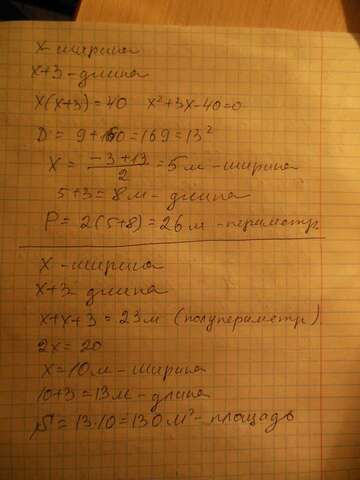 x-ширина
x+3-длина
x(x+3)=40 x²+3x-40=0
D=9+160=169=13²
x=(-3+13)/2=5м-ширина
5+3=8м-длина
P=2(5+8)=26м-периметр.
x-ширина
x+3 длина
x+x+3=23м (полупериметр)
2x=20
x=10м-ширина
10+3=13м-длина
S=13·10=130м²-площадь